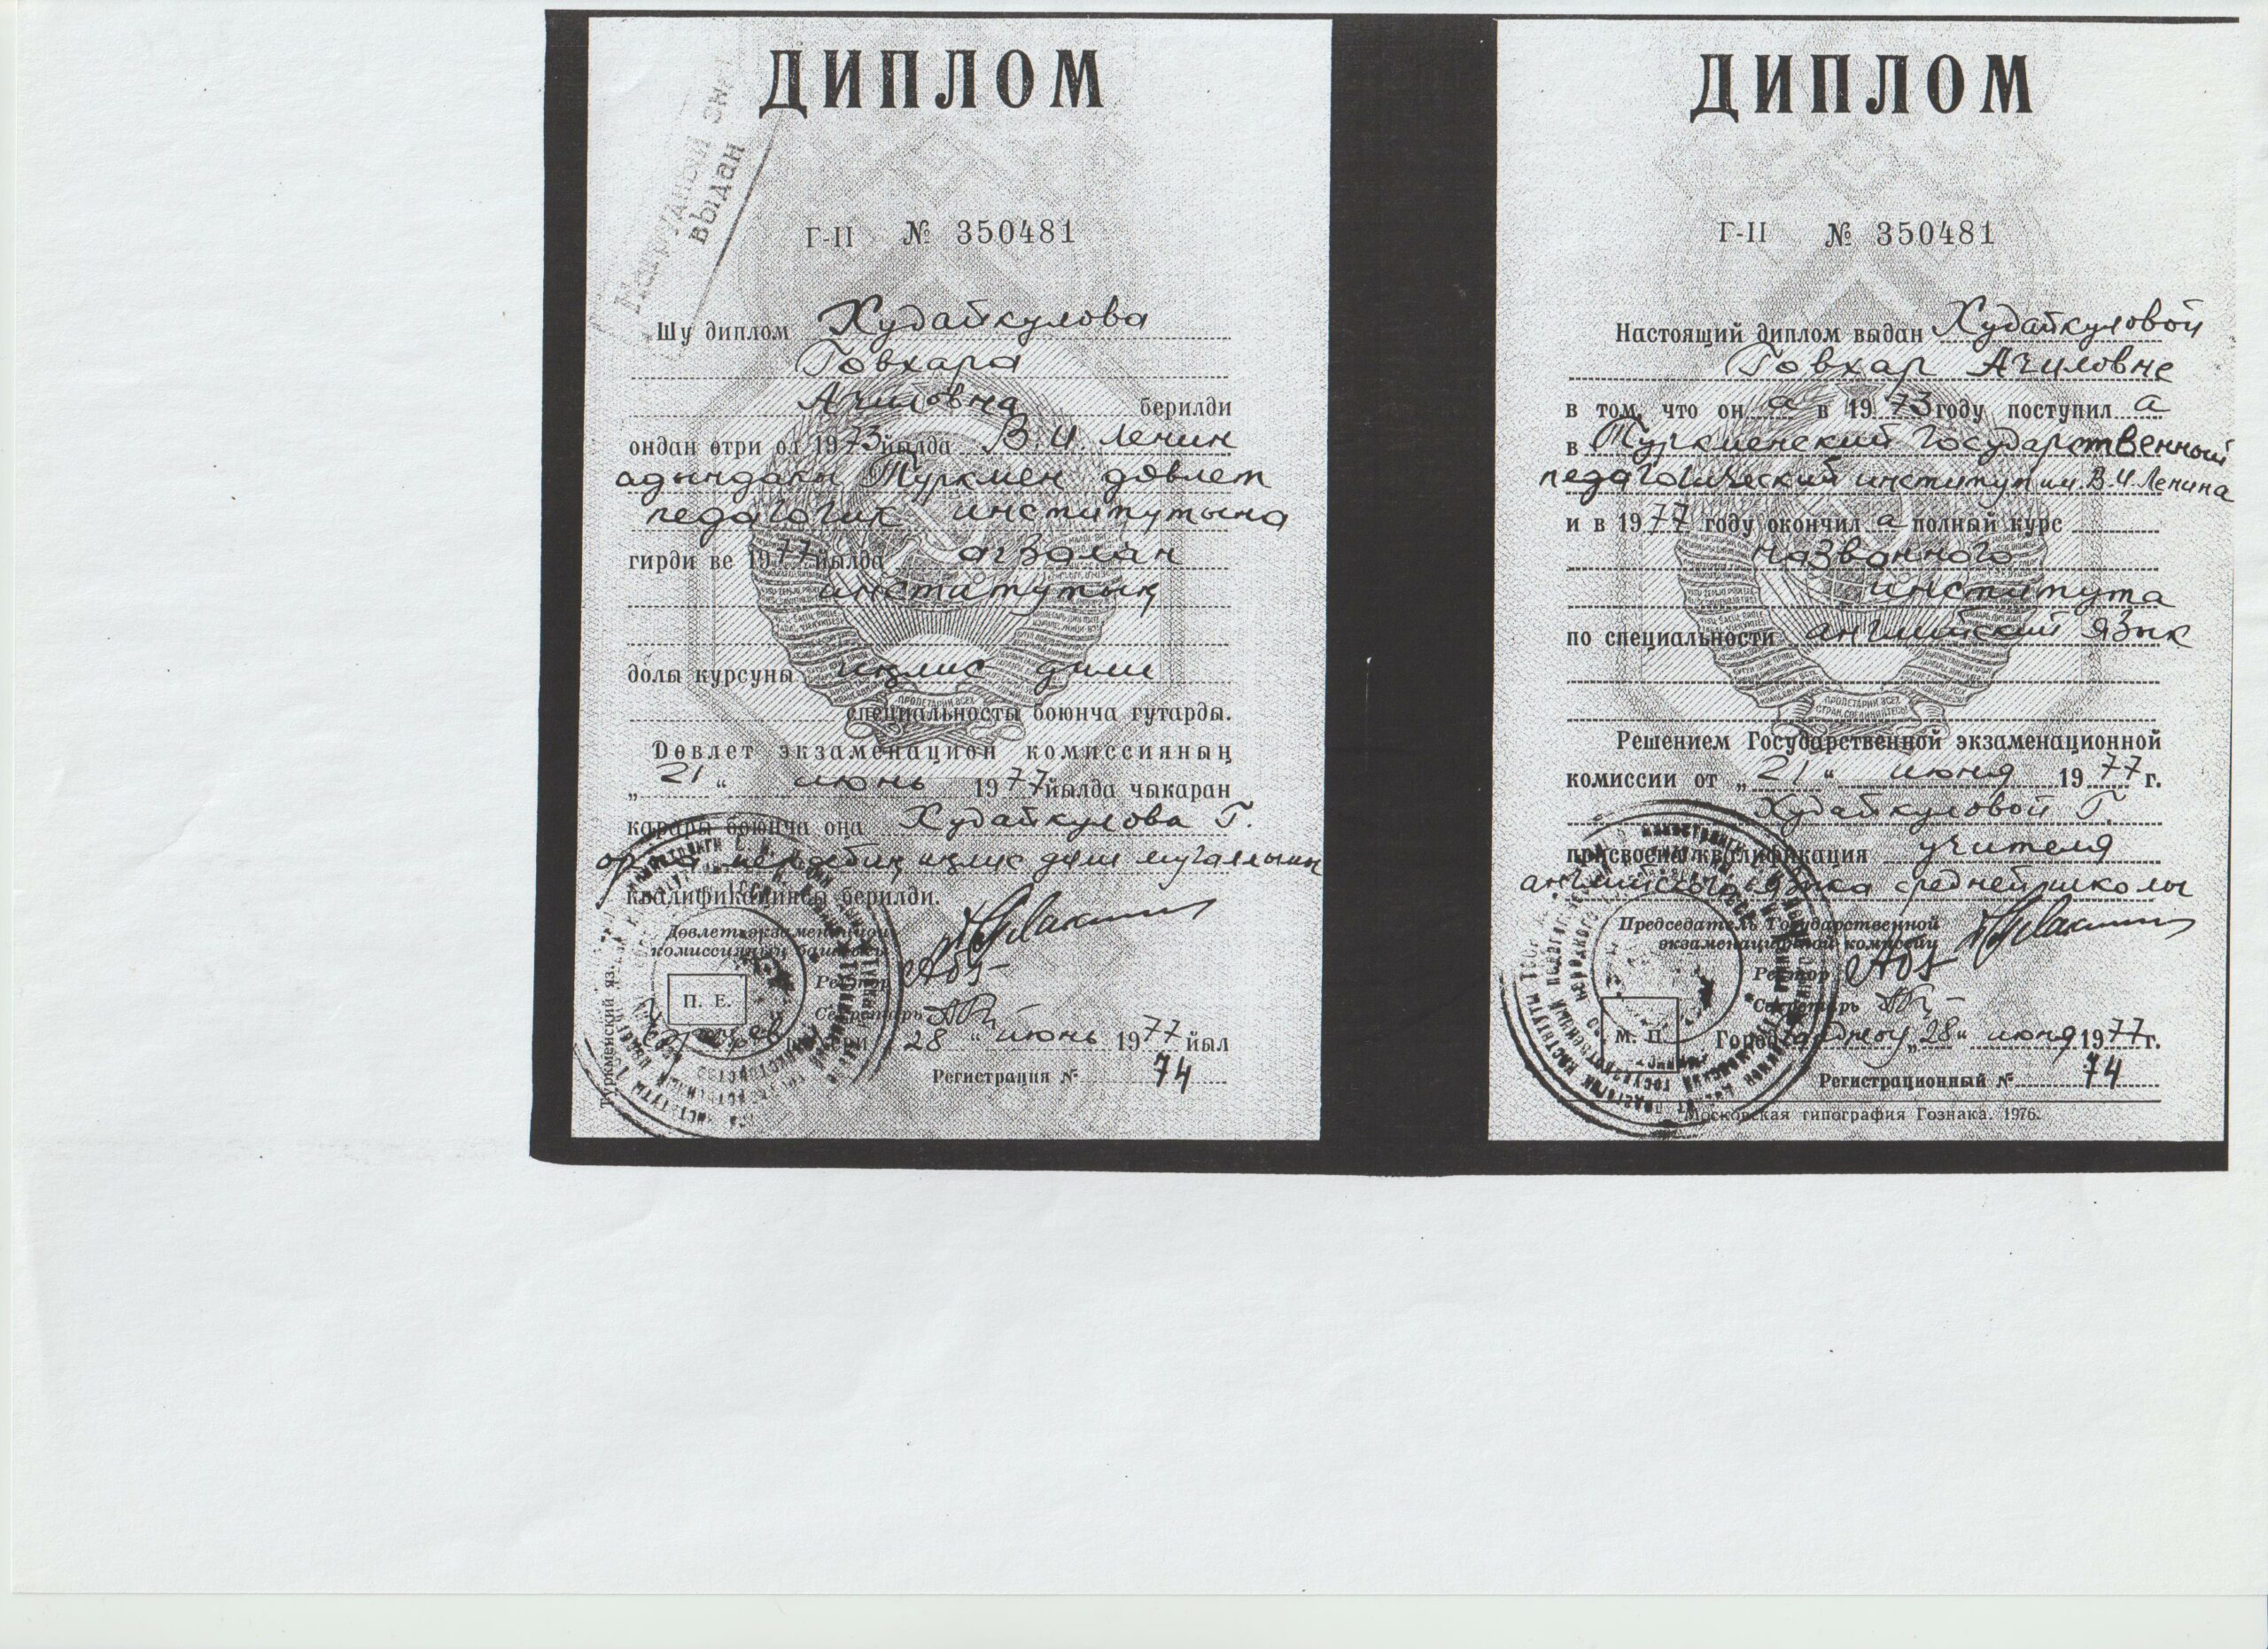 ДИПЛОМ
Нагрудный зн
выдан
Г-II № 350481
Шу диплом Худайкулова
Говхара
Ачиловна берилди
ондан өтри ол 1973 йылда В.И. Ленин
адындакы Түркмен дөвлет
педагогик институтына
гирди ве 1977 йылда агзалан
институтың
долы курсуны иңлис дили
специальносты боюнча гутарды.
Дөвлет экзаменацион комиссияның
„21“ июнь 1977 йылда чыкаран
карары боюнча оңа Худайкулова Г.
орта мекдебиң иңлис дили мугаллымы
квалификациясы берилди.
Дөвлет экзаменацион
комиссияның башлыгы
Ректор
Секретарь
П. Е.
28 “ июнь 1977 йыл
Регистрация № 74
Туркменский яз.
ДИПЛОМ
Г-II № 350481
Настоящий диплом выдан Худайкуловой
Говхар Ачиловне
в том, что он а в 1973 году поступил а
в Туркменский Государственный
педагогический институт им. В.И. Ленина
и в 1977 году окончил а полный курс
названного
института
по специальности английский язык
Решением Государственной экзаменационной
комиссии от „21“ июня 1977 г.
Худайкуловой Г.
присвоена квалификация учителя
английского языка средней школы
Председатель Государственной
экзаменационной комиссии
Ректор
Секретарь
М. П.
Город Чарджоу „28“ июня 1977 г.
Регистрационный № 74
Московская типография Гознака. 1976.